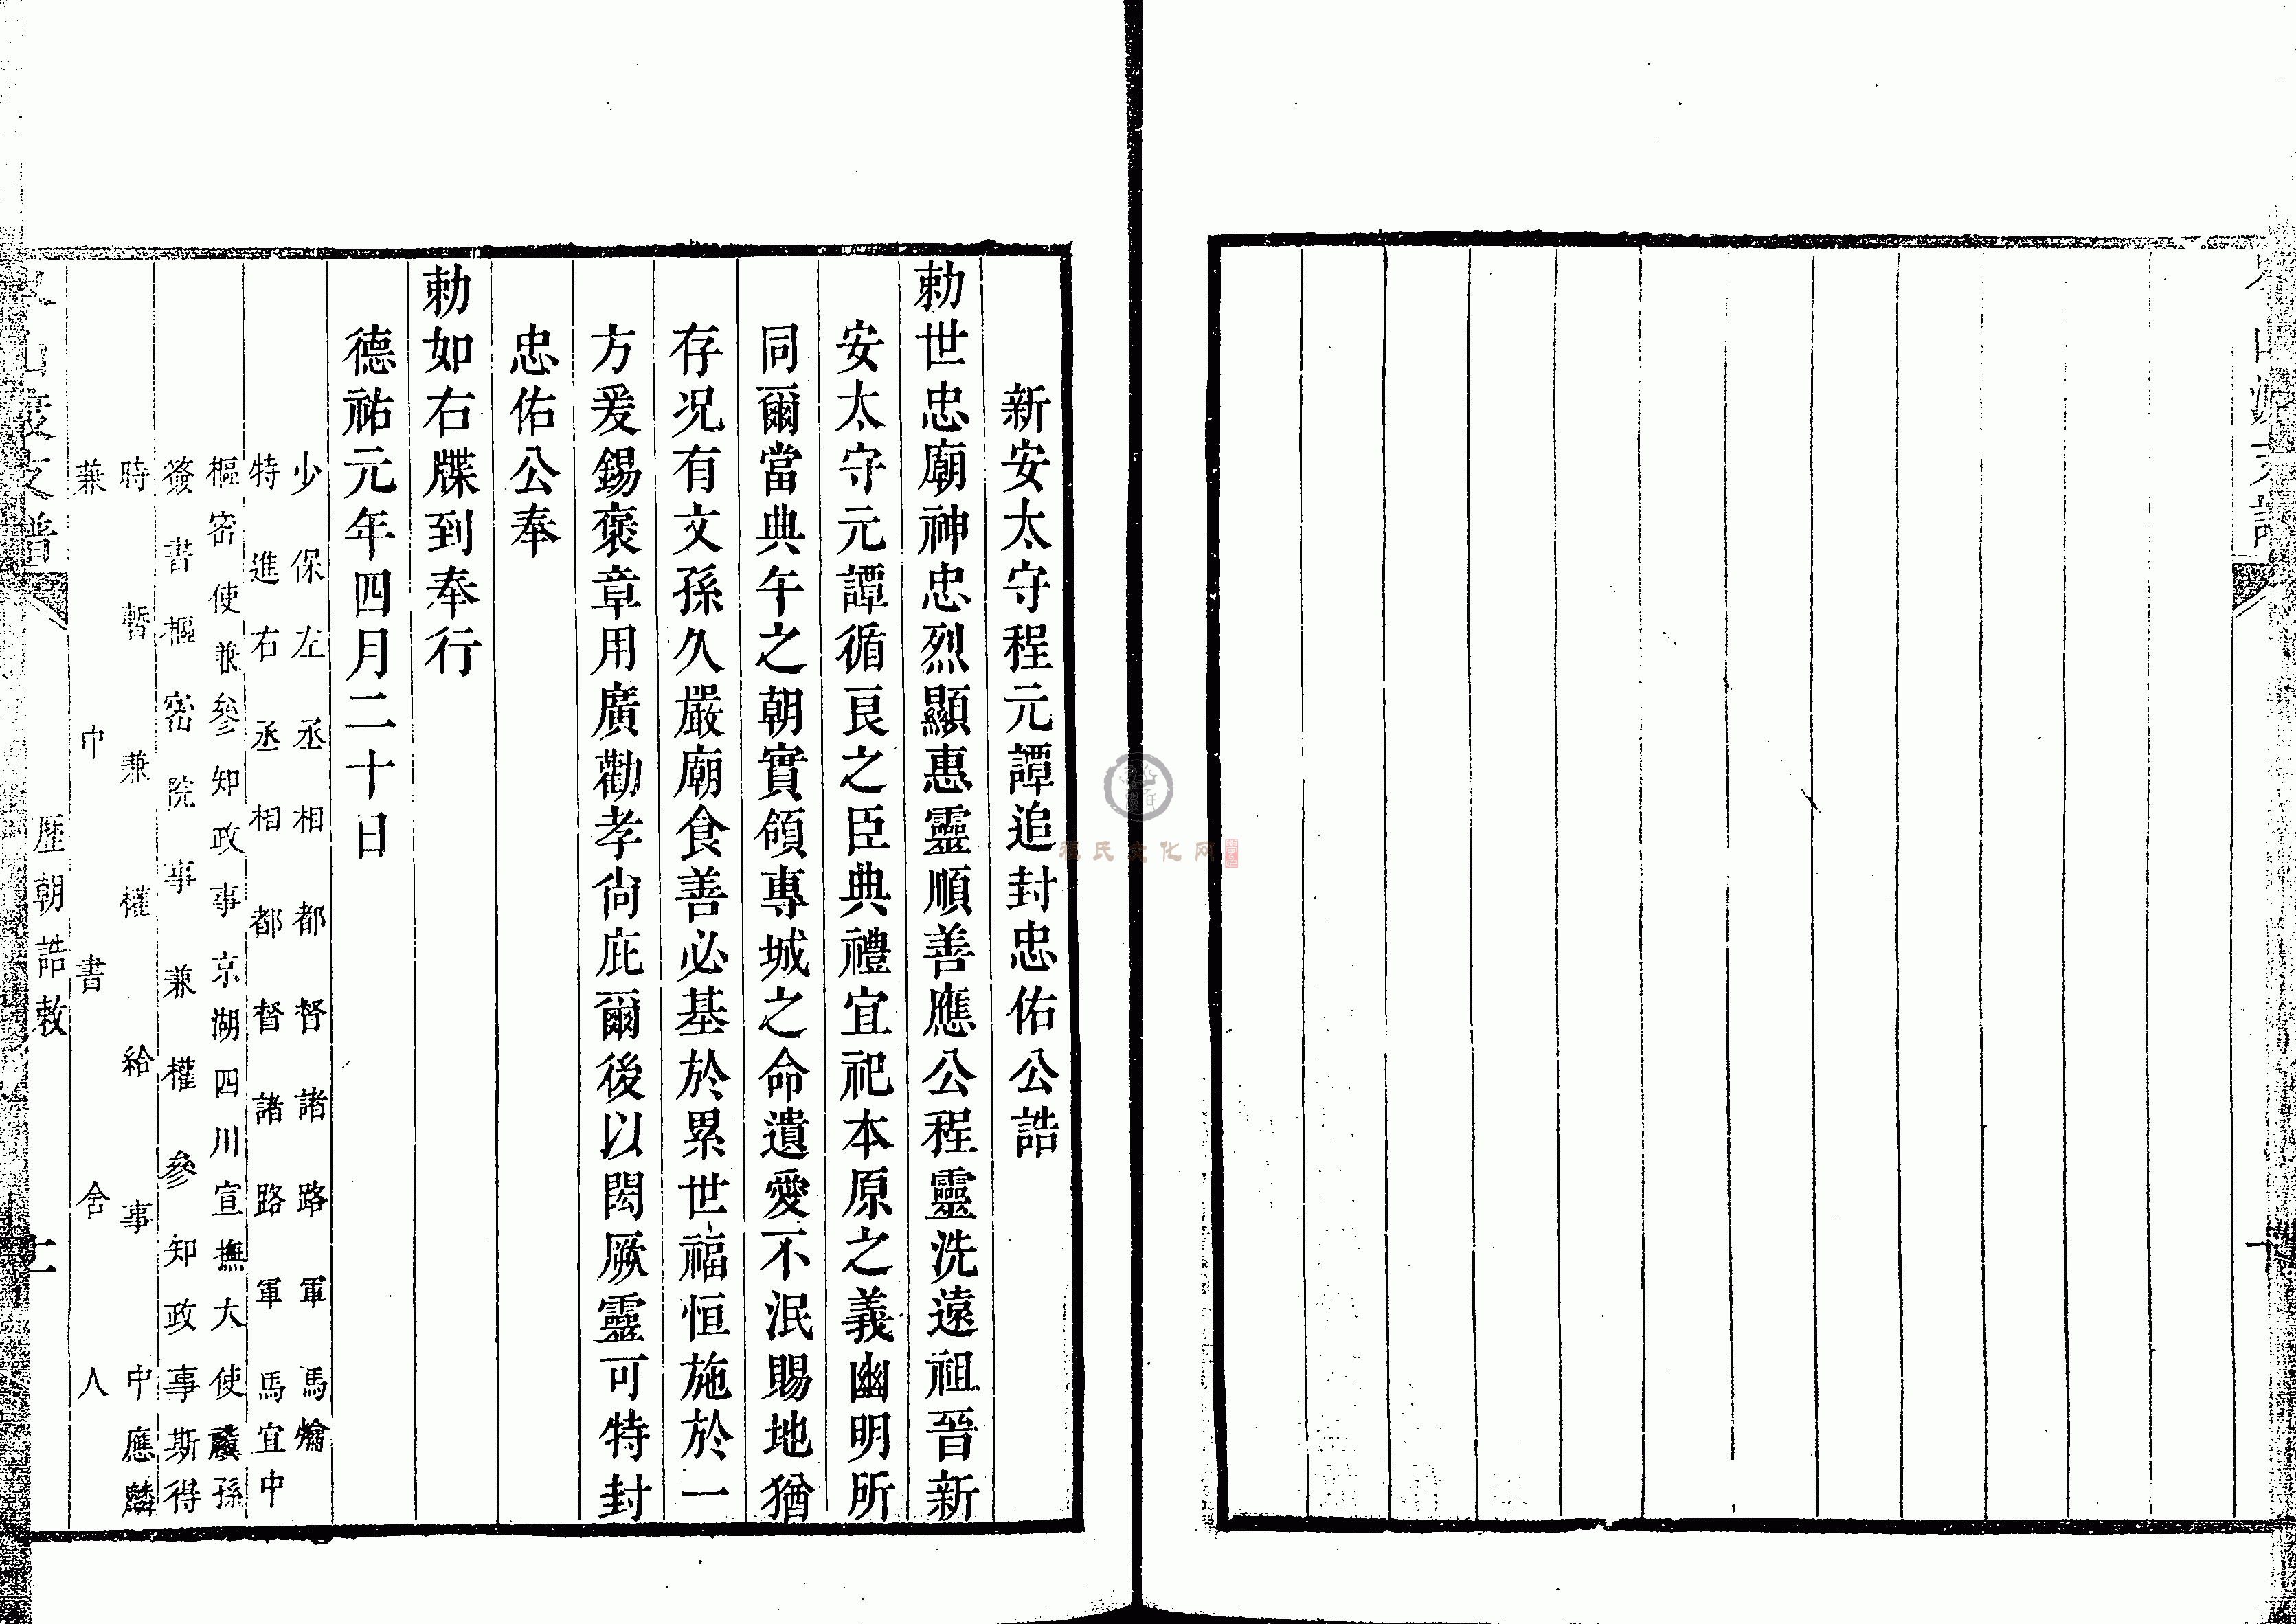 新安太守程元譚追封忠佑公誥
勅世忠廟神忠烈顯惠靈順善應公程靈洗遠祖晉新
安太守元譚循良之臣典禮宜祀本原之義幽明所
同爾當典午之朝實領專城之命遺愛不泯賜地猶
存况有文孫久嚴廟食善必基於累世福恒施於一
方爰錫褒章用廣勸孝尙庇爾後以閎厥靈可特封
忠佑公奉
勅如右牒到奉行
德祐元年四月二十日
少保左丞相都督諸路軍馬爚
特進右丞相都督諸路軍馬宜中
樞密使兼參知政事京湖四川宣撫大使孫
簽書樞密院事兼權參知政事斯得
時暫兼權給事中應麟
兼中書舍人
歷朝誥敕